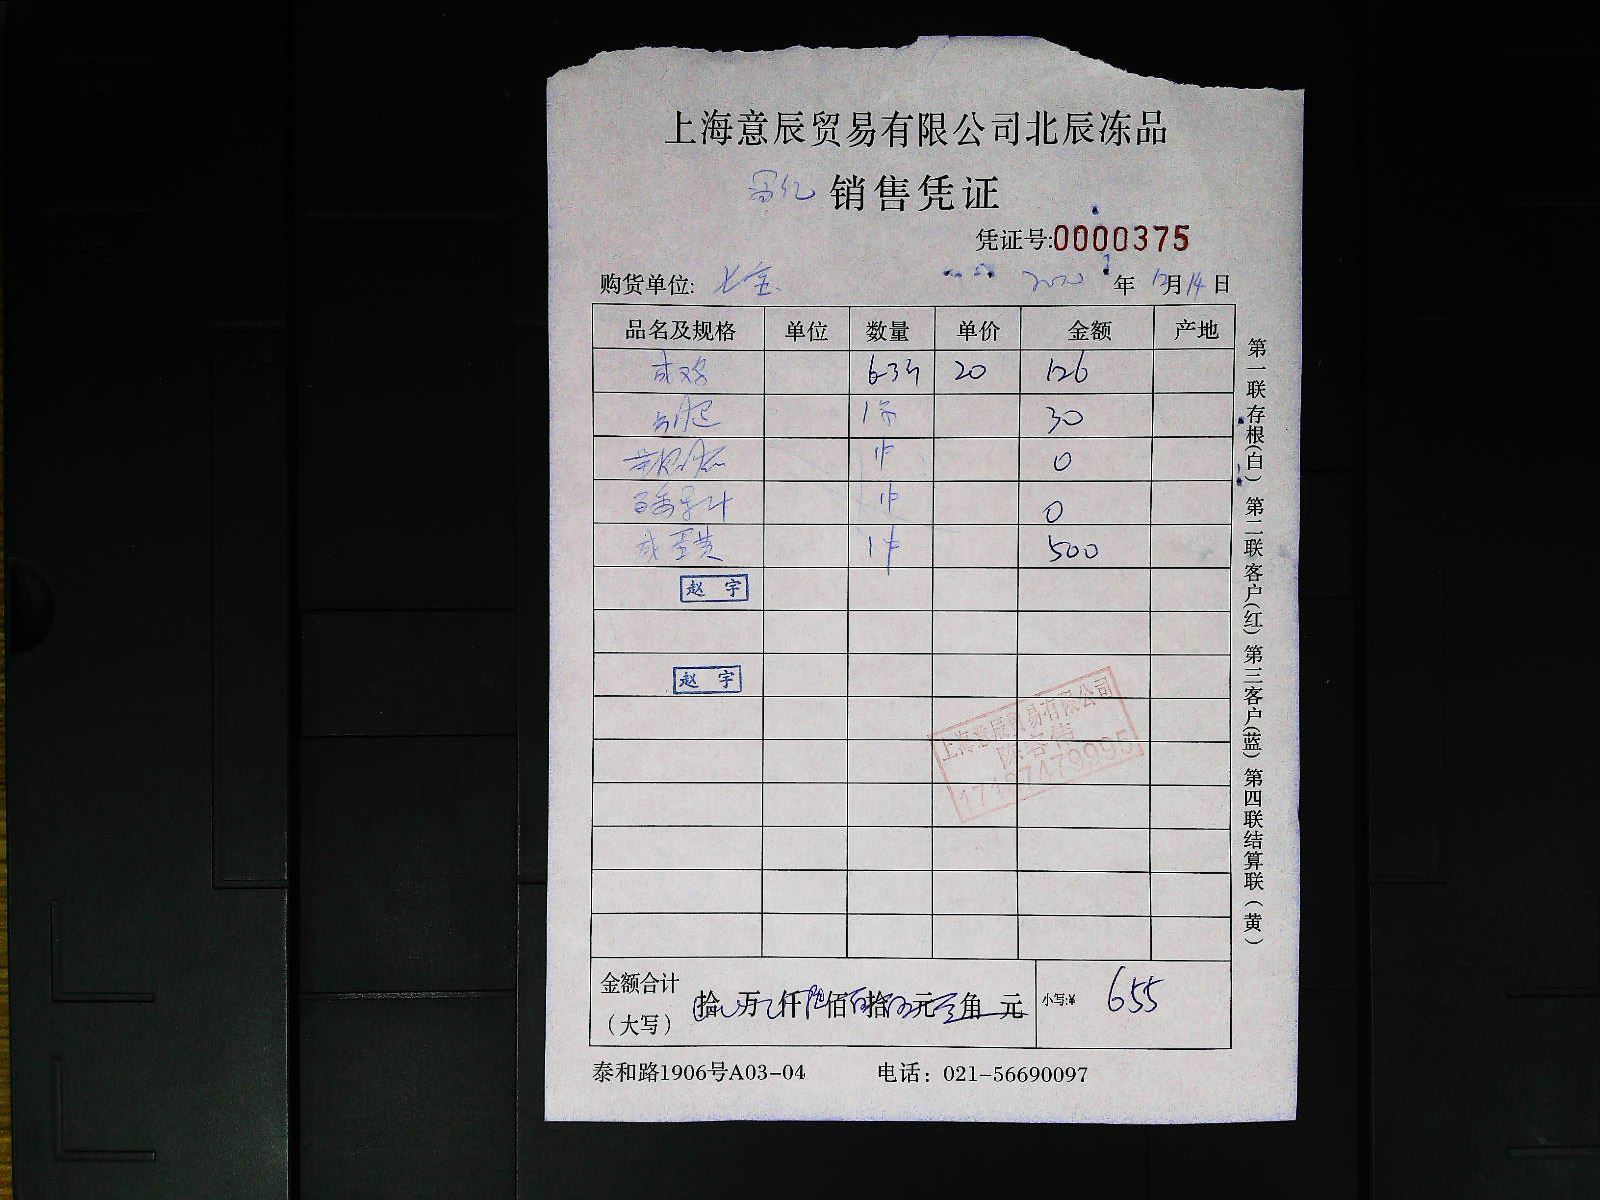 上海意辰贸易有限公司北辰冻品
销售凭证
凭证号:0000375
购货单位: 七宝 年 12月14日
品名及规格 单位 数量 单价 金额 产地
6.3斤 20 126
30
1件 0
1件 0
咸蛋黄 1件 500
赵 宇
赵 宇
上海意辰贸易有限公司
金额合计
(大写) 拾 万 仟 佰 拾 元 角 元 小写:¥ 655
泰和路1906号A03-04 电话: 021-56690097
第一联存根(白) 第二联客户(红) 第三客户(蓝) 第四联结算联(黄)